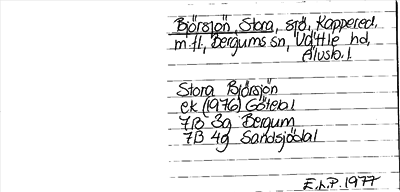 Björsjön, Stora, sjö, Kappered,
m.fl, Bergums sn, Vättle hd,
Älvsb.l
Stora Björsjön
ek (1976) Göteb l
7B 3g Bergum
7B 4g Sandsjödal
E.L.P. 1977